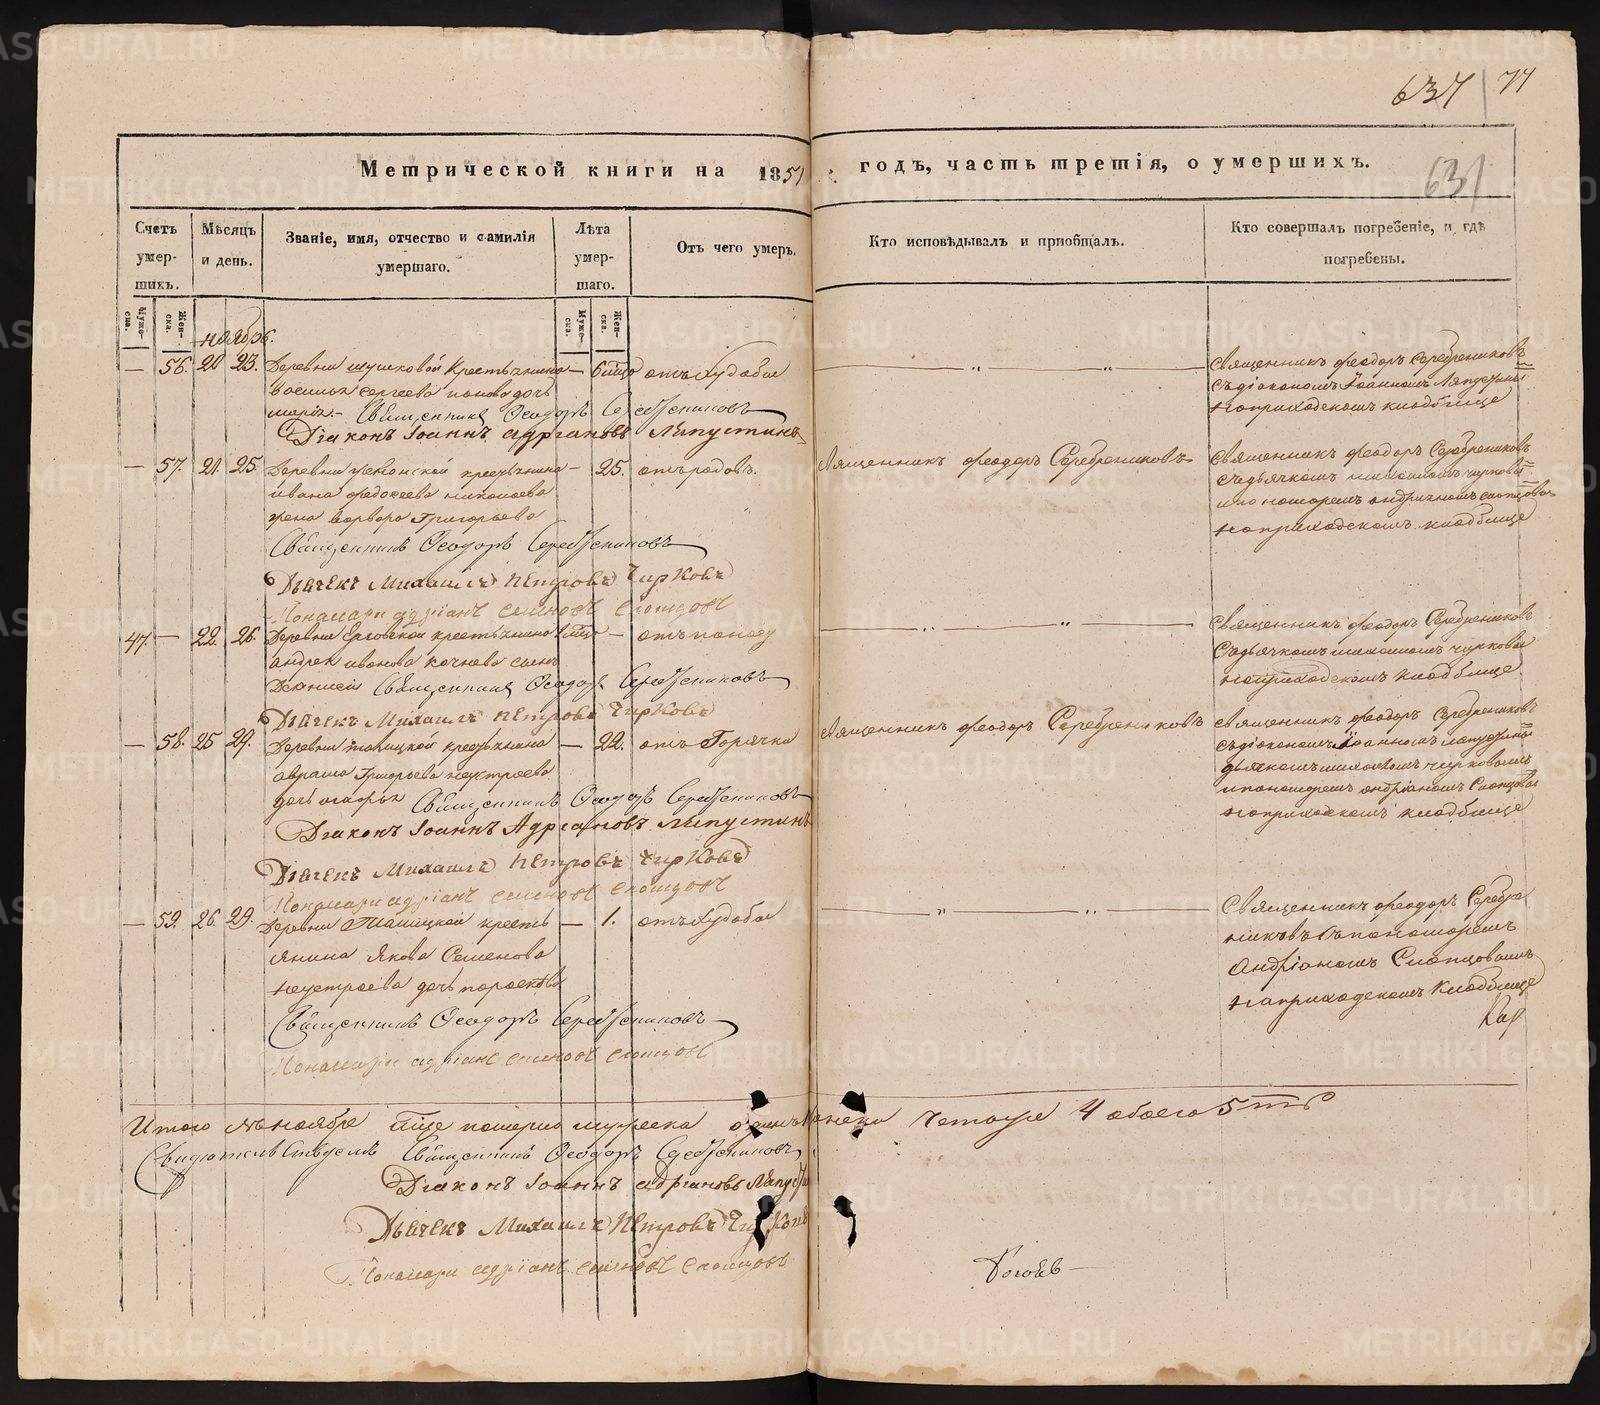 637 77
631
Метрической книги на 1851 годъ, часть третія, о умершихъ.
Счетъ умер-шихъ.
Мѣсяцъ и день.
Званіе, имя, отчество и фамилія умершаго.
Лѣта умер-шаго.
Отъ чего умеръ.
Кто исповѣдывалъ и пріобщалъ.
Кто совершалъ погребеніе, и гдѣ погребены.
Муже-ска.
Жен-ска.
Муже-ска.
Жен-ска.
ноябрь.
— 56. 20 23. Деревни крестьянина — 6 отъ худобы
василья сергеева попова дочь
марья — Священникъ Ѳеодоръ Серебренниковъ
Діаконъ Іоаннъ Адріановъ Ляпустинъ
Священникъ Феодоръ Серебрениковъ
съ діакономъ Іоанномъ Ляпустинымъ
на приходскомъ кладбище
— 57. 21. 25. Деревни крестьянина — 25. отъ родовъ.
ивана федосеева николаева
жена варвара Григорьева
Священникъ Ѳеодоръ Серебренниковъ
Дьячекъ Михаилъ Петровъ Чирковъ
Понамарь адріанъ семновъ слопцовъ
Священникъ Феодоръ Серебрениковъ
Священникъ Феодоръ Серебрениковъ
съ дьячкомъ михаиломъ чирковым
и пономаремъ андрияномъ слопцовым
на приходскомъ кладбище
47. — 22. 26. Деревни крестьянина —
андрея иванова кочнева сынъ
Священникъ Ѳеодоръ Серебренниковъ
Дьячекъ Михаилъ Петровъ Чирковъ
Священникъ Феодоръ Серебрениковъ
съ дьячкомъ михаиломъ чирковым
на приходскомъ кладбище
— 58. 25 29. Деревни крестьянина — 22. отъ Горячки
аврама Григорьева неустроева
дочь агафья Священникъ Ѳеодоръ Серебренниковъ
Діаконъ Іоаннъ Адріановъ Ляпустинъ
Дьячекъ Михаилъ Петровъ Чирковъ
Понамарь адріанъ семновъ слопцовъ
Священникъ Феодоръ Серебрениковъ
Священникъ Феодоръ Серебрениковъ
съ діакономъ Іоанномъ ляпустиным
дьячкомъ михаиломъ чирковымъ
и пономаремъ андріаномъ Слопцовым
на приходскомъ кладбище
— 59. 26. 29. Деревни кресть — 1. отъ худобы
янина Якова Семенова
неустроева дочь парасковья
Священникъ Ѳеодоръ Серебренниковъ
Понамарь адріанъ семновъ слопцовъ
Священникъ феодоръ Серебре
никовъ съ пономаремъ
Андріаномъ Слопцовымъ
на приходскомъ Кладбище
Итого въ ноябре померло мужеска одинъ женска четыре 4 обоего 5
Свидетельствуемъ Священникъ Ѳеодоръ Серебренниковъ
Діаконъ Іоаннъ Адріановъ Ляпустин
Дьячекъ Михаилъ Петровъ Чирковъ
Понамарь адріанъ семновъ слопцовъ
METRIKI.GASO-URAL.RU